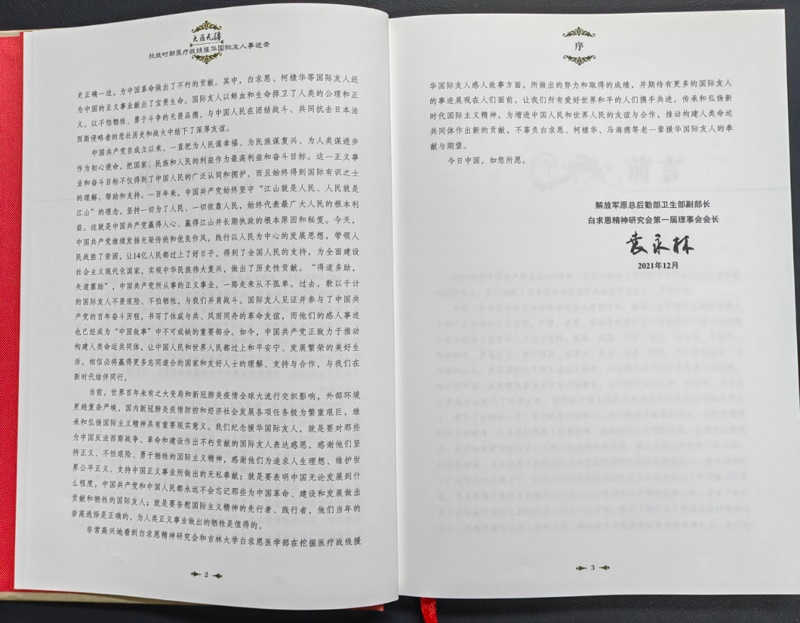 大医无疆
抗战时期医疗战线援华国际友人事迹录
史正确一边，为中国革命做出了不朽的贡献。其中，白求恩、柯棣华等国际友人还
为中国的正义事业献出了宝贵生命。国际友人以鲜血和生命捍卫了人类的公理和正
义，以不怕牺牲、勇于斗争的无畏品德，与中国人民在团结战斗、共同抗击日本法
西斯侵略者的悲壮历史和战火中结下了深厚友谊。
中国共产党自成立以来，一直把为人民谋幸福、为民族谋复兴、为人类谋进步
作为初心使命，把国家、民族和人民的利益作为最高利益和奋斗目标。这一正义事
业和奋斗目标不仅得到了中国人民的广泛认同和拥护，而且始终得到国际有识之士
的理解、帮助和支持。一百年来，中国共产党始终坚守“江山就是人民、人民就是
江山”的理念，坚持一切为了人民、一切依靠人民，始终代表最广大人民的根本利
益，这就是中国共产党赢得人心、赢得江山并长期执政的根本原因和秘笈。今天，
中国共产党继续发扬光荣传统和优良作风，践行以人民为中心的发展思想，带领人
民战胜了贫困，让14亿人民都过上了好日子，得到了全国人民的支持，为全面建设
社会主义现代化国家，实现中华民族伟大复兴，做出了历史性贡献。“得道多助，
失道寡助”，中国共产党所从事的正义事业，一路走来从不孤单。过去，数以千计
的国际友人不畏艰险、不怕牺牲，与我们并肩战斗。国际友人见证并参与了中国共
产党的百年奋斗历程，书写了休戚与共、风雨同舟的革命友谊，而他们的感人事迹
也已经成为“中国故事”中不可或缺的重要部分。如今，中国共产党正致力于推动
构建人类命运共同体，让中国人民和世界人民都过上和平安宁、发展繁荣的美好生
活，相信必将赢得更多志同道合的国家和友好人士的理解、支持与合作，与我们在
新时代结伴同行。
当前，世界百年未有之大变局和新冠肺炎疫情全球大流行交织影响，外部环境
更趋复杂严峻，国内新冠肺炎疫情防控和经济社会发展各项任务极为繁重艰巨，继
承和弘扬国际主义精神具有重要现实意义。我们纪念援华国际友人，就是要对那些
为中国反法西斯战争、革命和建设作出不朽贡献的国际友人表达感恩，感谢他们坚
持正义、不怕艰险、勇于牺牲的国际主义精神，感谢他们为追求人生理想、维护世
界公平正义、支持中国正义事业所做出的无私奉献；就是要表明中国无论发展到什
么程度，中国共产党和中国人民都永远不会忘记那些为中国革命、建设和发展做出
贡献和牺牲的国际友人；就是要告慰国际主义精神的先行者、践行者，他们当年的
崇高选择是正确的，为人类正义事业做出的牺牲是值得的。
非常高兴地看到白求恩精神研究会和吉林大学白求恩医学部在挖掘医疗战线援
2
序
华国际友人感人故事方面，所做出的努力和取得的成绩，并期待有更多的国际友人
的事迹展现在人们面前，让我们所有爱好世界和平的人们携手共进，传承和弘扬新
时代国际主义精神，为增进中国人民和世界人民的友谊与合作，推动构建人类命运
共同体作出新的贡献，不辜负白求恩、柯棣华、马海德等老一辈援华国际友人的奉
献与期望。
今日中国，如您所愿。
解放军原总后勤部卫生部副部长
白求恩精神研究会第一届理事会会长
袁永林
2021年12月
3